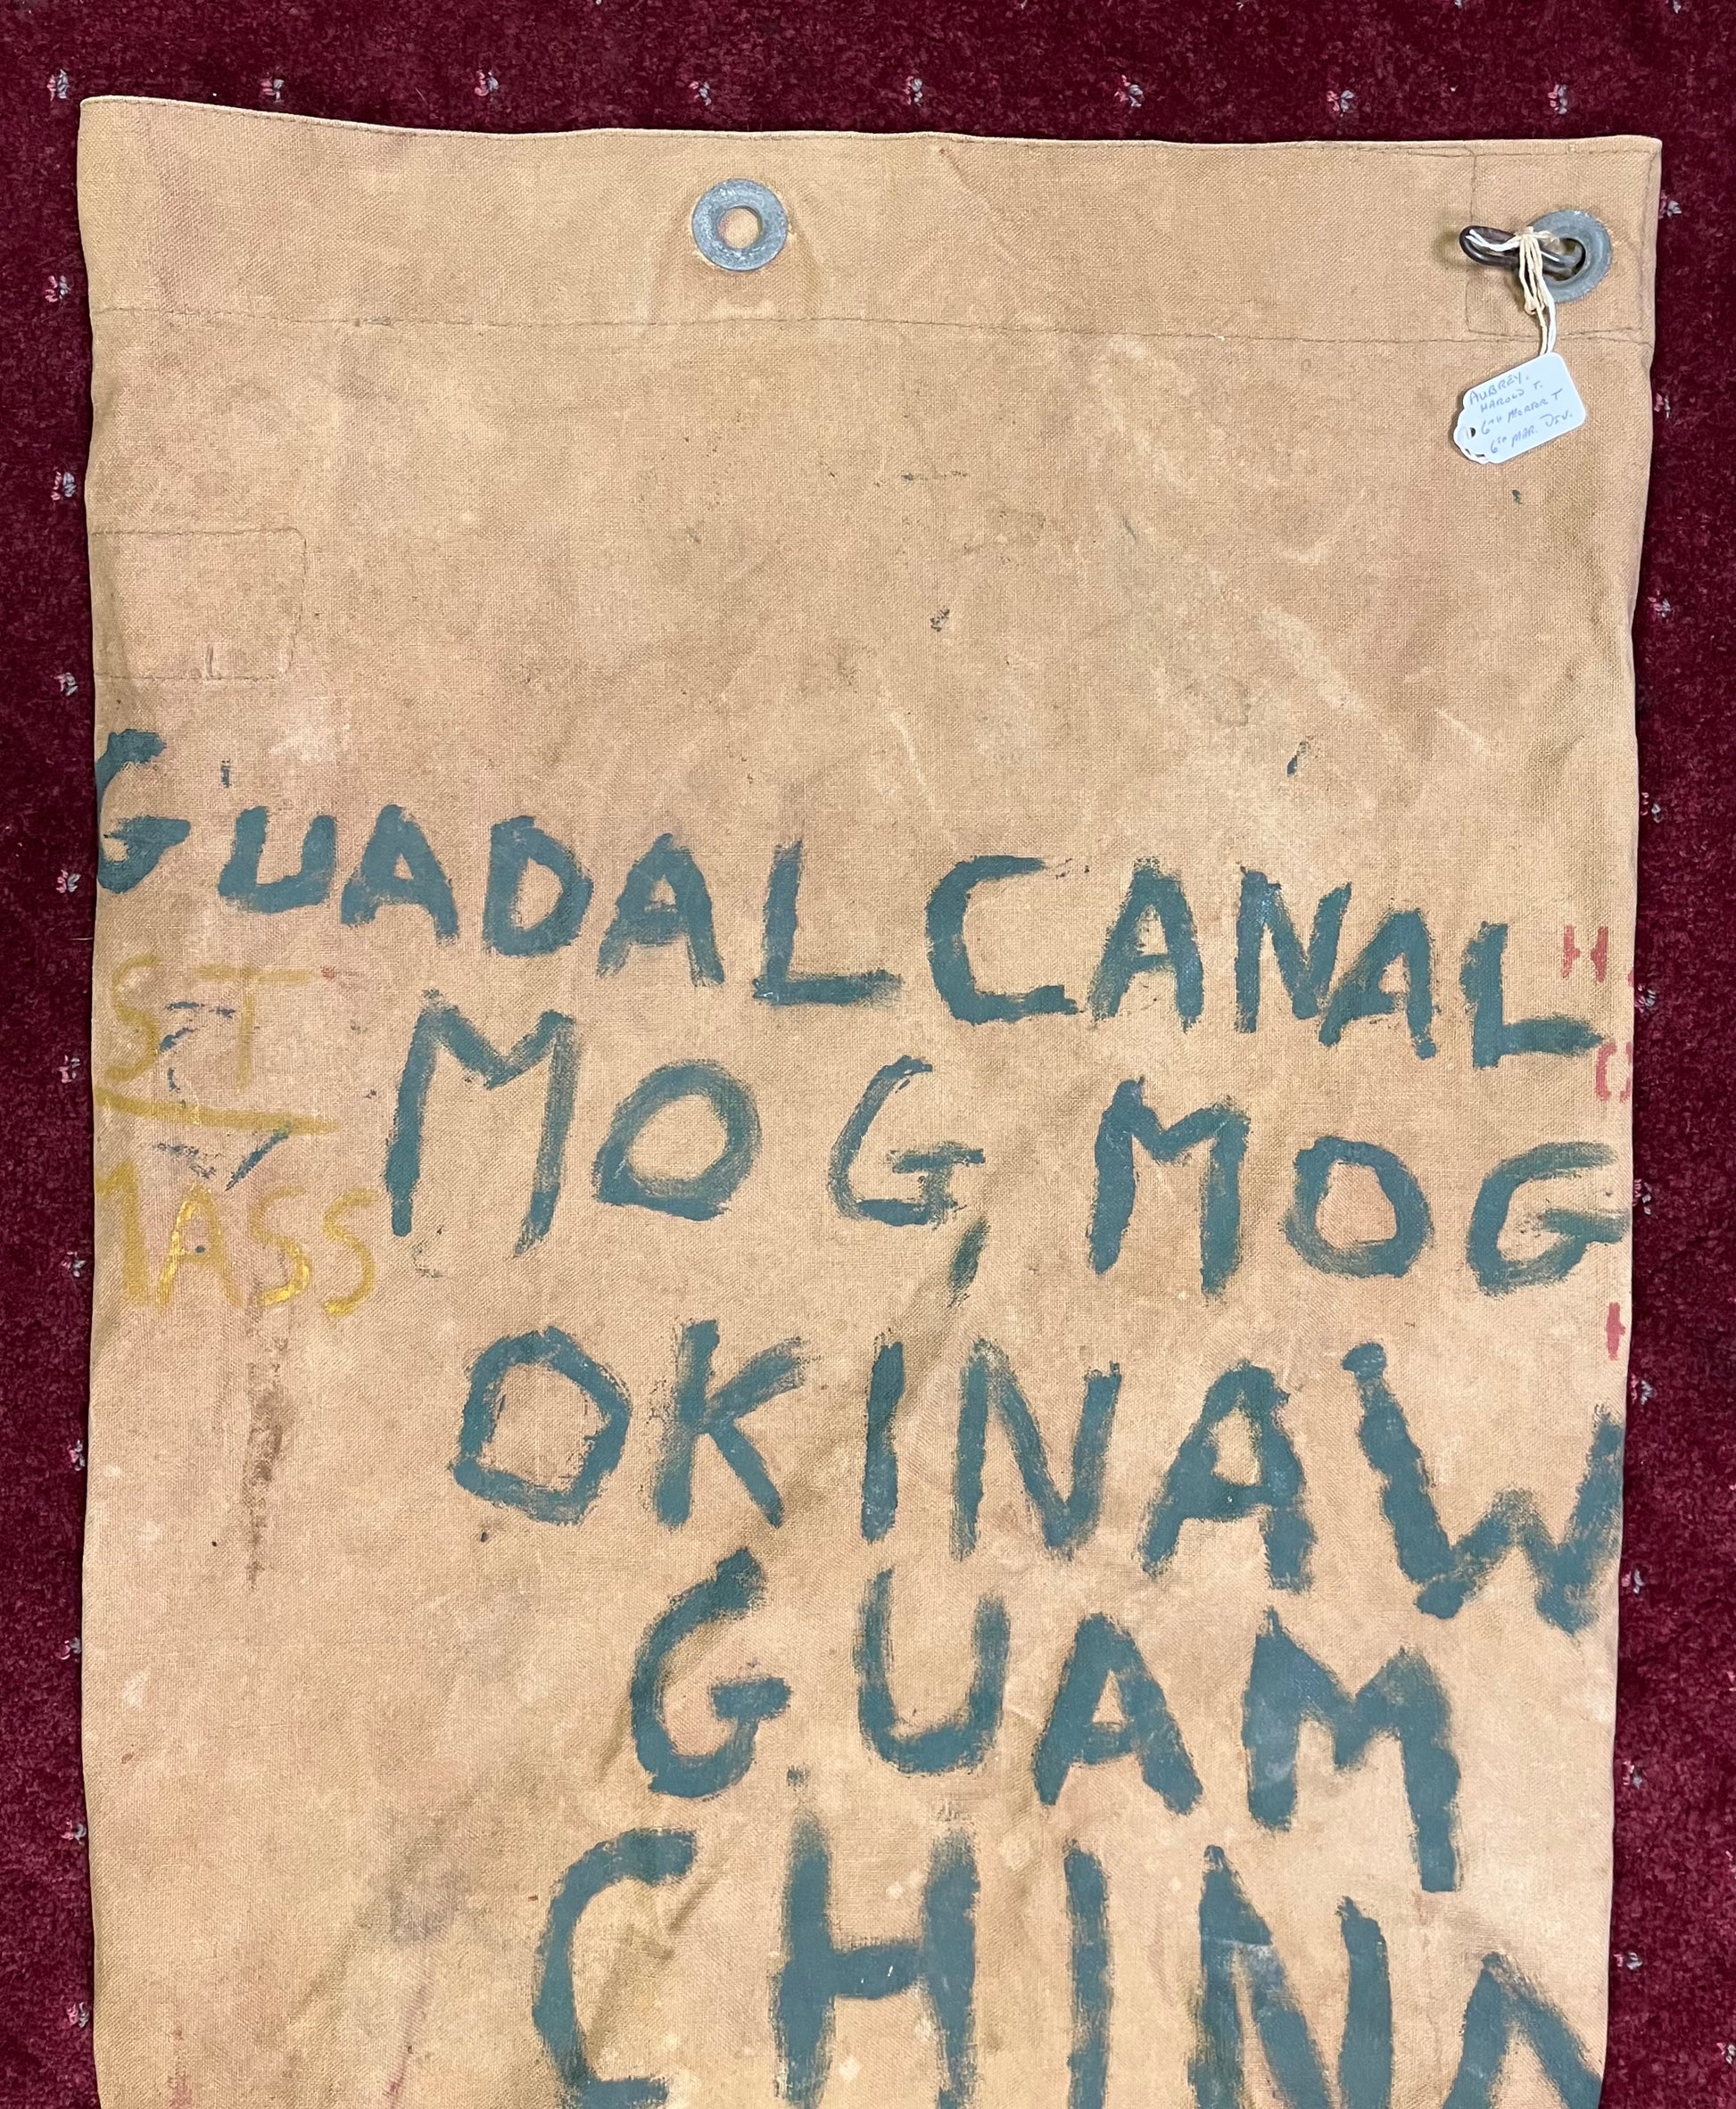 AUBREY,
HAROLD T.
6TH MORTOR T
6TH MAR. DIV.
GUADALCANAL
ST
MOG MOG
MASS
OKINAW
GUAM
CHINA